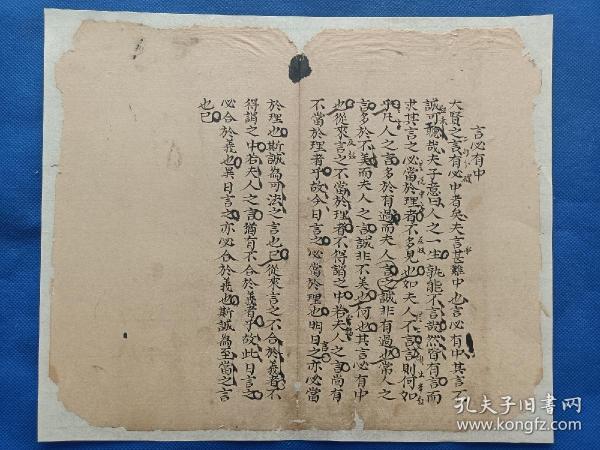 言必有中
大賢之言有必中者矣夫言甚難中也言必有中其言不
誠可魏哉夫子意曰人之一生孰能不言哉然皆有言而
求其言之必當於理者不多見也如夫人不言言則何如
乎凡人之言多於有過而夫人之言誠非有過也常人之
言多於不美而夫人之言誠非不美也何也其言必有中
也從來言之不當於理者不得謂之中若夫人之言尚有
不當於理者乎故今日言之必當於理也明日言之亦必當
於理也斯誠為可法之言也已從來言之不合於義者不
得謂之中若夫人之言猶有不合於義者乎故此日言之
必合於義也異日言之亦必合於義也斯誠為至當之言
也已
孔夫子旧书网
www.kongfz.com